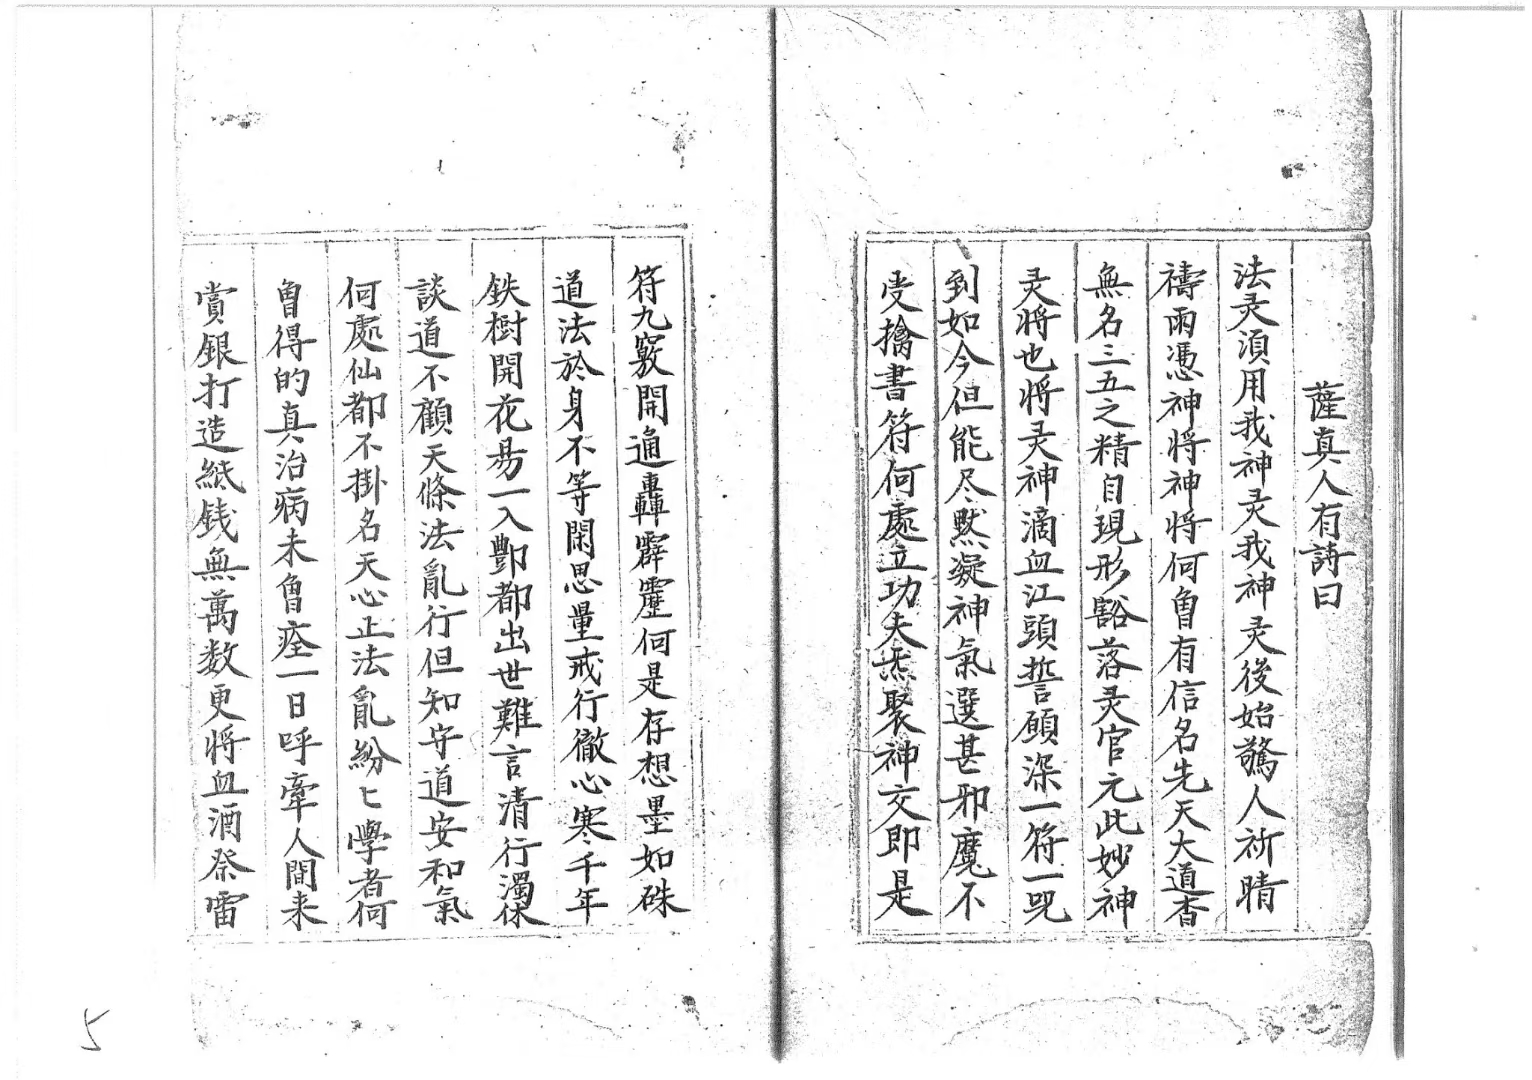 薩真人有詩曰
法灵湏用我神灵我神灵後始驚人祈晴
禱雨憑神將神將何曾有信名先天大道杳
無名三五之精自現形豁落灵官元此妙神
灵将也将灵神滴血江頭誓願深一符一咒
到如今但能尽黙凝神氣選甚邪魔不
受擒書符何處立功夫炁聚神交即是
符九竅開通轟霹靂何是存想墨如硃
道法於身不等閑思量戒行徹心寒千年
鉄樹開花易一入酆都出世難言清行濁休
談道不顧天條法亂行但知守道安和氣
何處仙都不掛名天心正法亂紛〻學者何
曾得的真治病未曾痊一日呼牽人間来
賞銀打造紙銭無萬数更将血酒祭雷
5